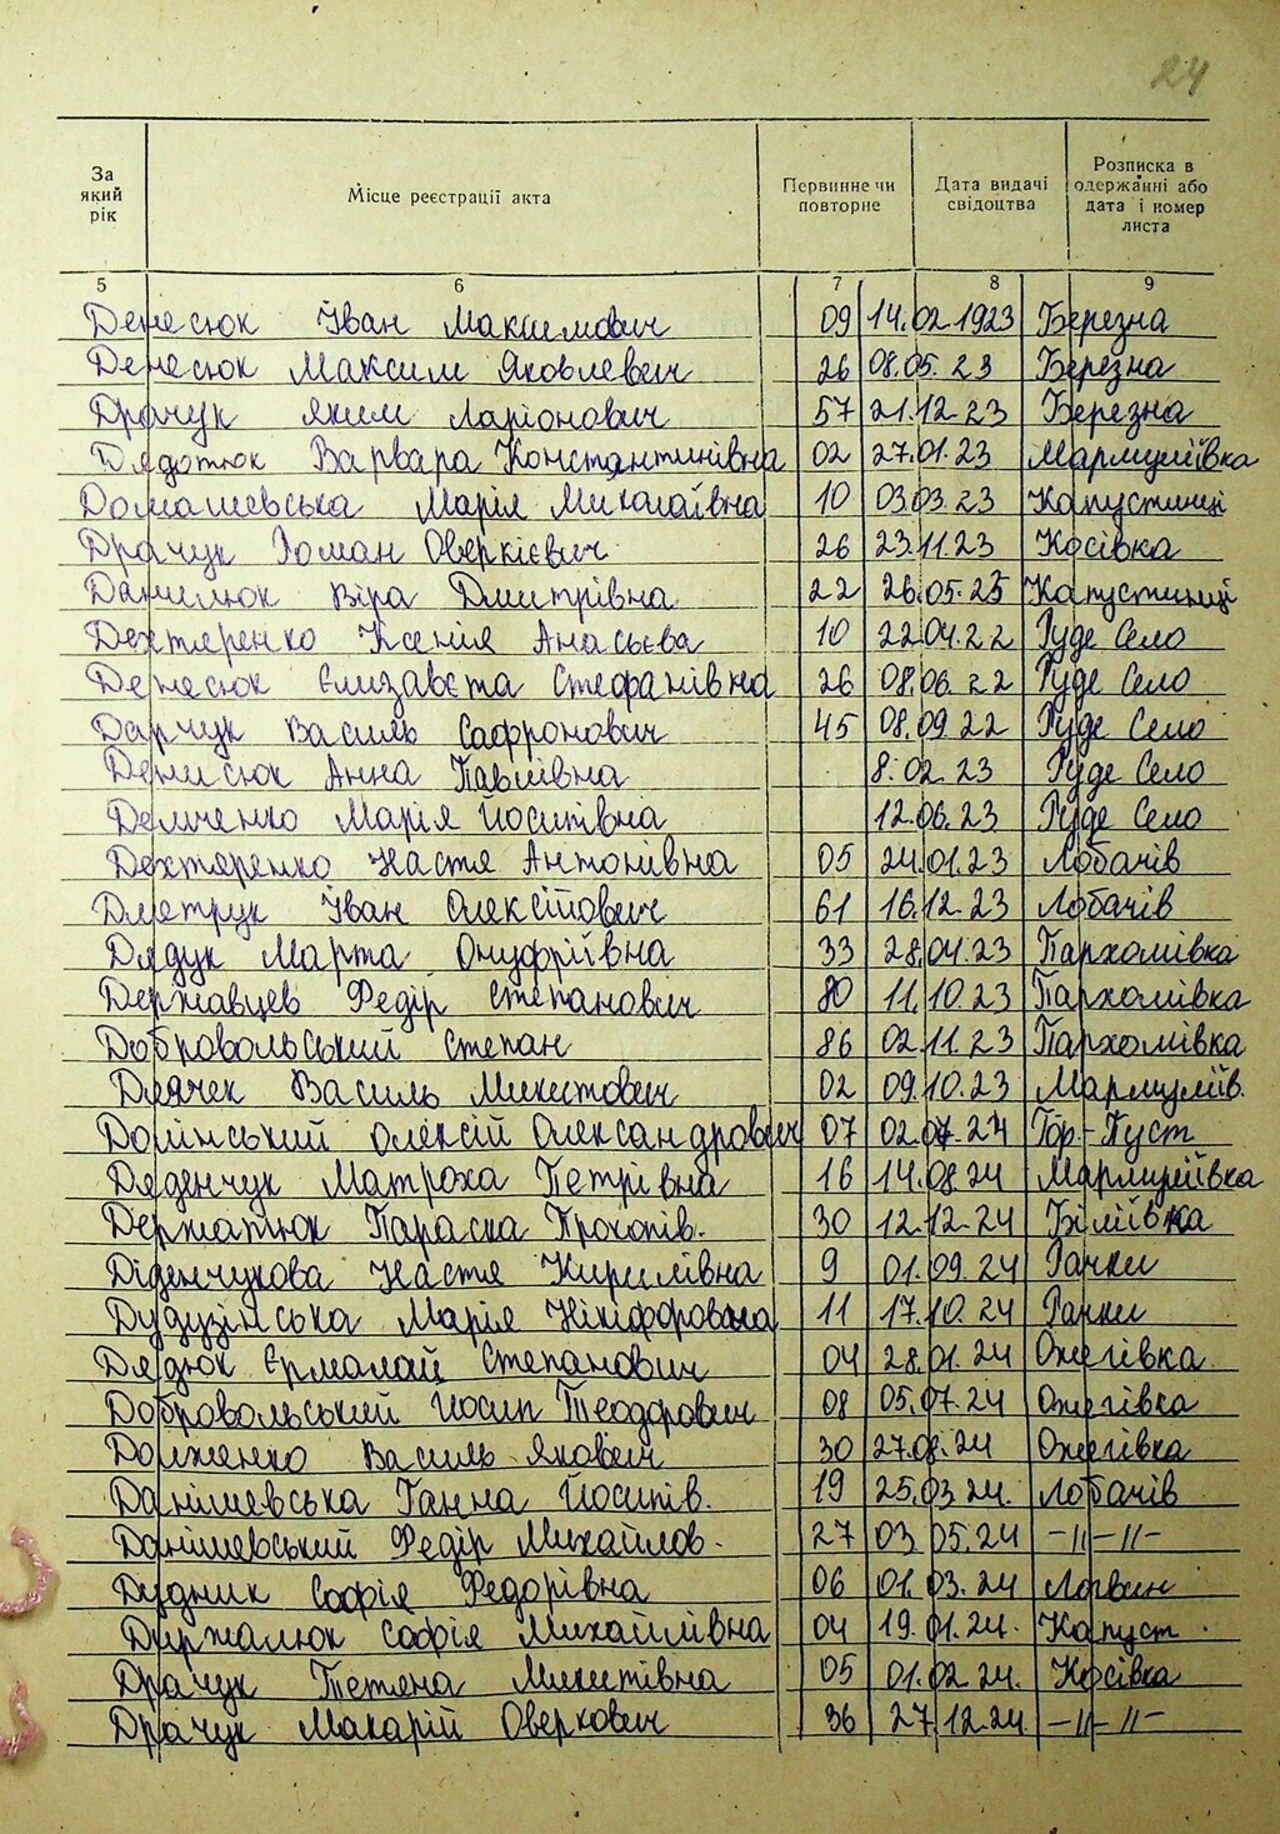 24
За який рік | Місце реєстрації акта | Первинне чи повторне | Дата видачі свідоцтва | Розписка в одержанні або дата і номер листа
5 6 7 8 9
Денесюк Іван Максимович 09 14.02.1923 Березна
Денесюк Максим Яковлевич 26 08.05.23 Березна
Драчук Яким Ларіонович 57 21.12.23 Березна
Дядотюк Варвара Константинівна 02 27.01.23 Мармуліївка
Домашевська Марія Миколаївна 10 03.03.23 Капустинці
Драчук Роман Оверкієвич 26 23.11.23 Косівка
Данилюк Віра Дмитрівна 22 26.05.23 Капустинці
Дехтяренко Ксенія Анасьєва 10 22.04.22 Руде Село
Денесюк Єлизавєта Стефанівна 26 08.06.22 Руде Село
Дарчук Василь Сафронович 45 08.09.22 Руде Село
Денисюк Анна Павлівна 8.02.23 Руде Село
Демченко Марія Йоситівна 12.06.23 Руде Село
Дехтяренко Настя Антонівна 05 24.01.23 Лобачів
Дметрук Іван Олексійович 61 16.12.23 Лобачів
Дядук Марта Онуфріївна 33 28.04.23 Пархомівка
Державцев Федір Степанович 80 11.10.23 Пархомівка
Добровольський Степан 86 02.11.23 Пархомівка
Дячек Василь Микитович 02 09.10.23 Мармуліїв.
Долінський Олексій Олександрович 07 02.07.24 Гор-Пуст
Дяденчук Матроха Петрівна 16 14.08.24 Мармуліївка
Держапюк Параска Прокопів. 30 12.12.24 Біліївка
Діденчукова Настя Кирилівна 9 01.09.24 Рачки
Дудузінська Марія Нікіфоровна 11 17.10.24 Рачки
Дядюк Єрмалай Степанович 04 28.01.24 Ожегівка
Добровольський Йосип Теодорович 08 05.07.24 Ожегівка
Долженко Василь Якович 30 27.08.24 Ожегівка
Данішевська Ганна Йосипів. 19 25.03.24. Лобачів
Данішевський Федір Михайлов. 27 03.05.24 -||-||-
Дудник Софія Федорівна 06 01.03.24 Логвин
Держалюк Софія Михайлівна 04 19.01.24. Капуст.
Драчук Тетяна Микитівна 05 01.02.24. Косівка
Драчук Макарій Оверкович 36 27.12.24. -||-||-